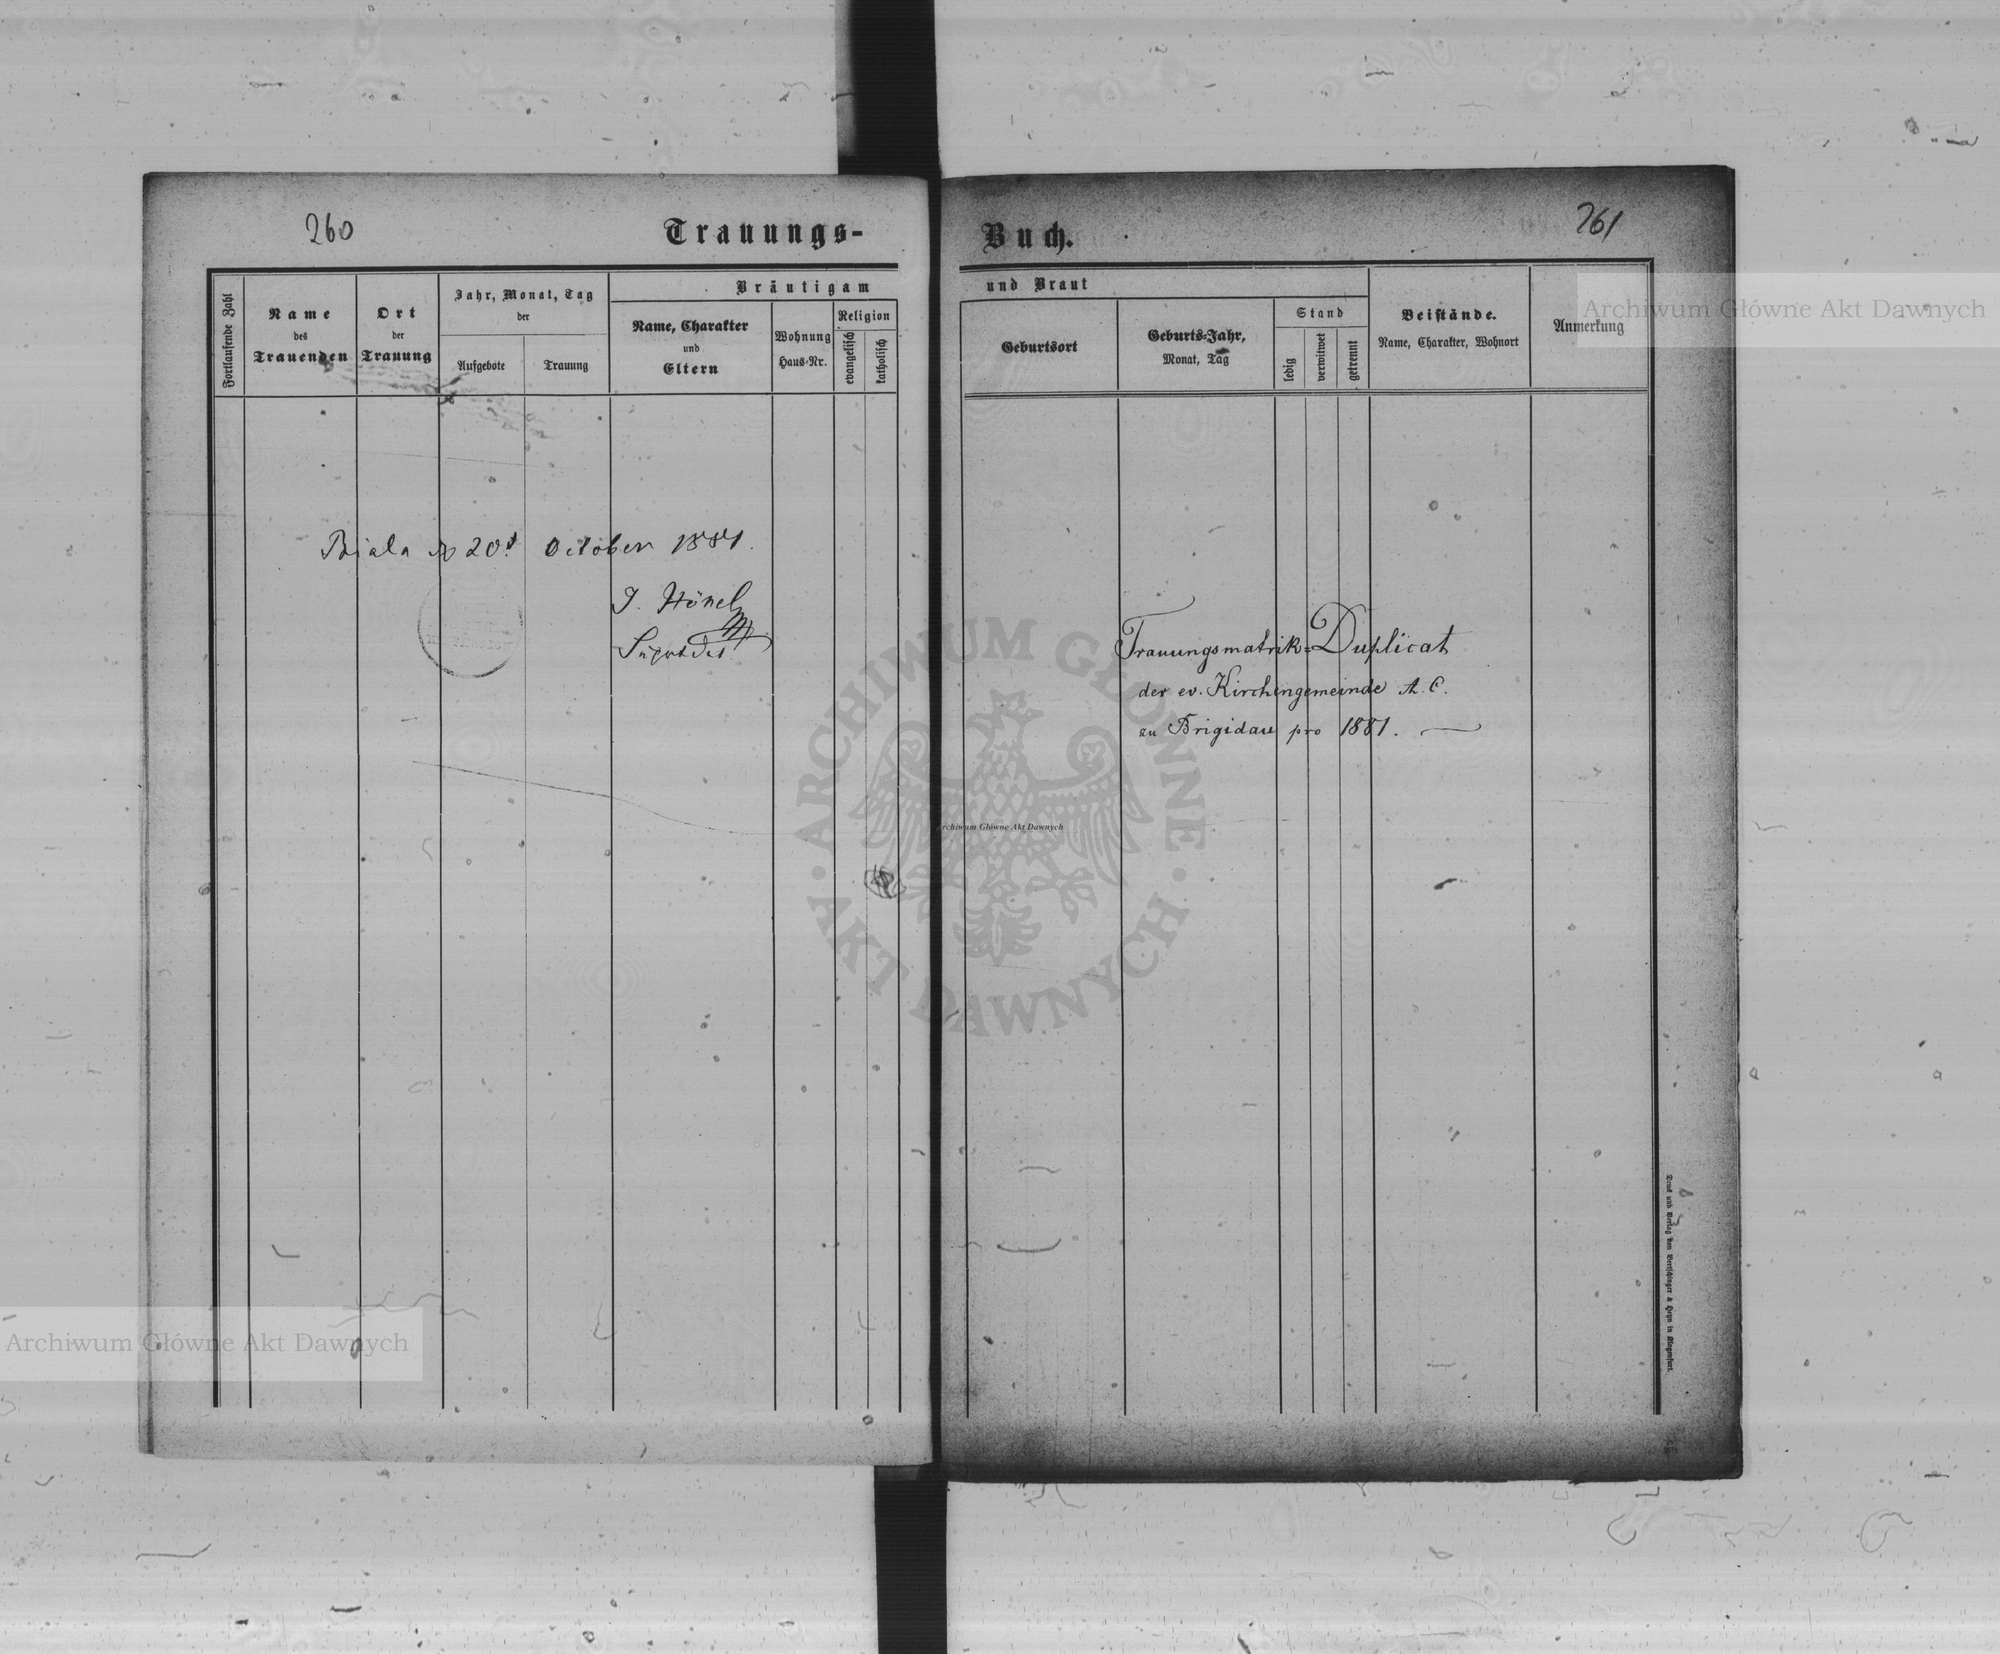 260
Trauungs-
Fortlaufende Zahl
Name
des
Trauenden
Ort
der
Trauung
Jahr, Monat, Tag
der
Aufgebote
Trauung
Bräutigam
Name, Charakter
und
Eltern
Wohnung
Haus-Nr.
Religion
evangelisch
katholisch
Biala 20. October 1881.
J. Hönel
Buch.
261
und Braut
Geburtsort
Geburts-Jahr,
Monat, Tag
Stand
ledig
verwitwet
getrennt
Beistände.
Name, Charakter, Wohnort
Anmerkung
Trauungsmatrik-Duplicat
der ev. Kirchengemeinde A. C.
zu Brigidau pro 1881. —
Druck und Verlag von Bertschinger & Heyn in Klagenfurt.
Archiwum Główne Akt Dawnych
ARCHIWUM GŁÓWNE
AKT DAWNYCH
Archiwum Główne Akt Dawnych
Archiwum Główne Akt Dawnych